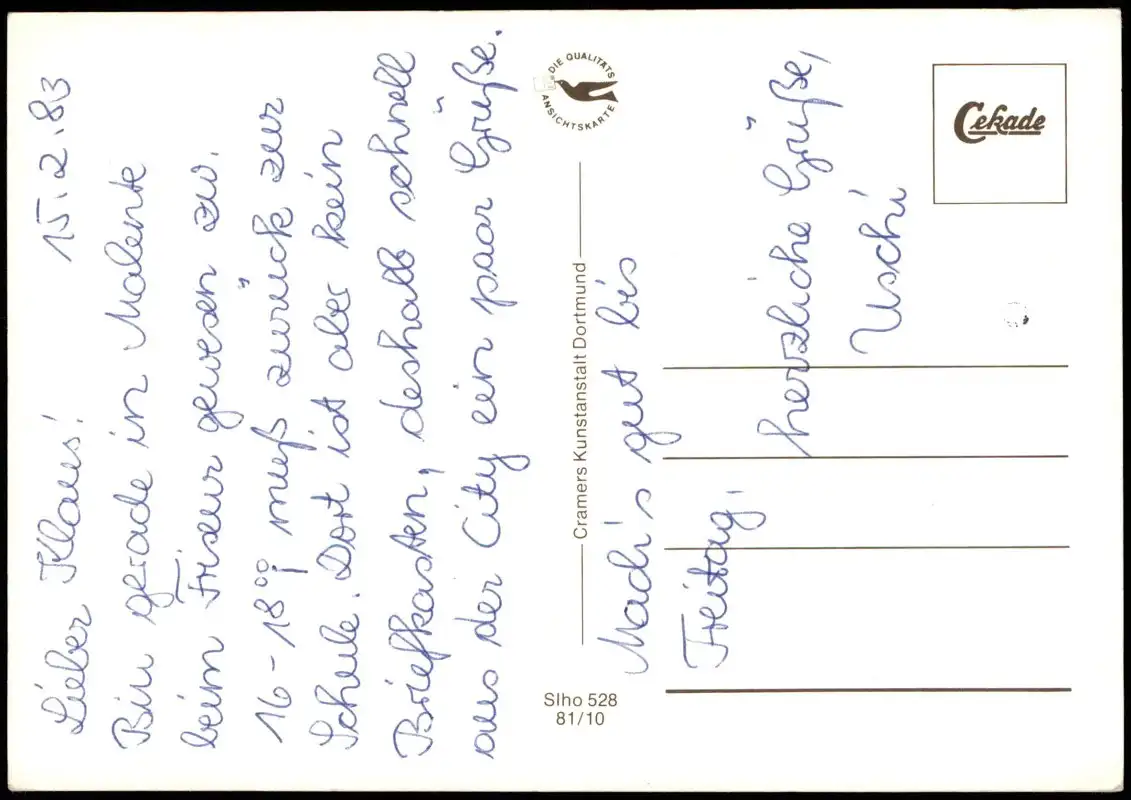 Lieber Klaus! 15.2.83
Bin gerade in Malente
beim Friseur gewesen zw.
16-18⁰⁰, muß zurück zur
Schule. Dort ist aber kein
Briefkasten, deshalb schnell
aus der City ein paar Grüße.
Mach's gut bis
Freitag.
herzliche Grüße,
Uschi
DIE QUALITÄTS
ANSICHTSKARTE
Cramers Kunstanstalt Dortmund
Slho 528
81/10
Cekade